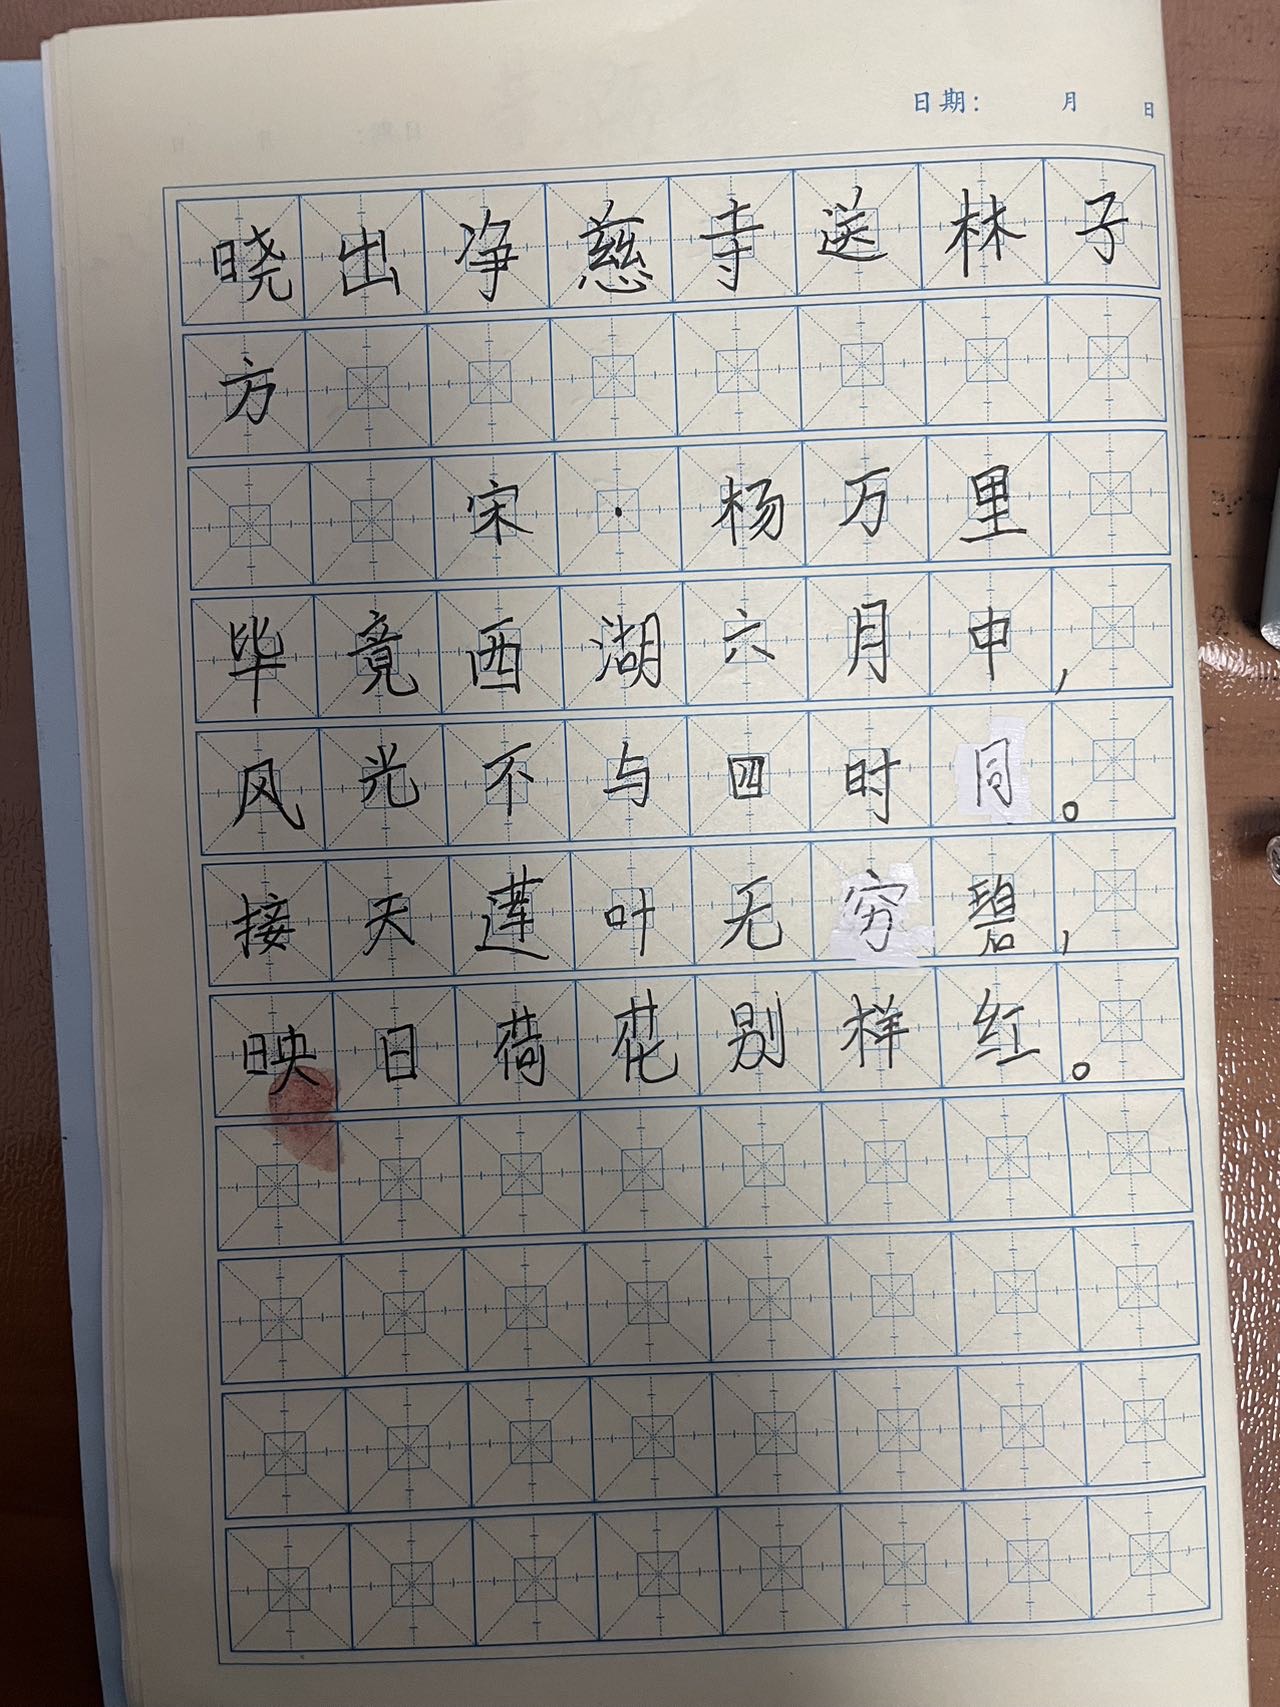 日期: 月 日
晓出净慈寺送林子
方
宋·杨万里
毕竟西湖六月中,
风光不与四时同。
接天莲叶无穷碧,
映日荷花别样红。